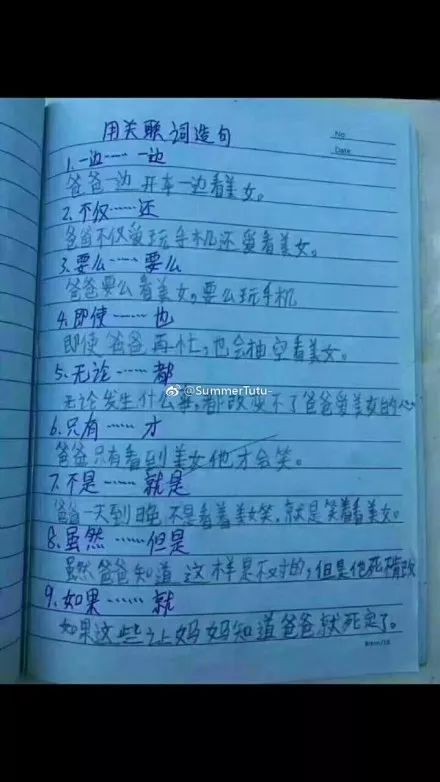 用关联词造句
No
Date
1.一边……一边
爸爸一边开车一边看美女。
2.不仅……还
爸爸不仅爱玩手机还爱看美女。
3.要么……要么
爸爸要么看美女,要么玩手机
4.即使……也
即使爸爸再忙,也会抽空看美女。
5.无论……都
@SummerTutu-
无论发生什么事,都改变不了爸爸爱美女的心
6.只有……才
爸爸只有看到美女他才会笑。
7.不是……就是
爸爸一天到晚不是看着美女笑,就是笑着看美女。
8.虽然……但是
虽然爸爸知道这样是不对的,但是他死性不改
9.如果……就
如果这些让妈妈知道爸爸就死定了。